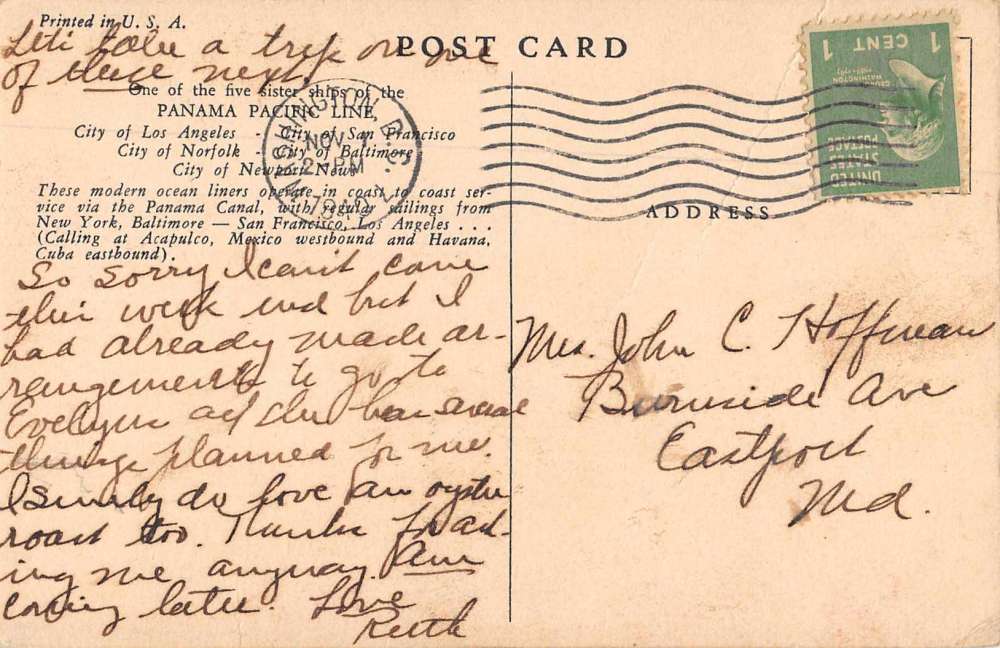 Printed in U. S. A.
Let's take a trip on one
of these next.
POST CARD
One of the five sister ships of the
PANAMA PACIFIC LINE,
City of Los Angeles - City of San Francisco
City of Norfolk - City of Baltimore
City of Newport News
These modern ocean liners operate in coast to coast ser-
vice via the Panama Canal, with regular sailings from
New York, Baltimore — San Francisco, Los Angeles . . .
(Calling at Acapulco, Mexico westbound and Havana,
Cuba eastbound).
WASHINGTON, D.C.
NOV
2 - PM
19
1 CENT 1
GEORGE
WASHINGTON
UNITED
STATES
POSTAGE
ADDRESS
So sorry I can't come
this week end but I
had already made ar-
rangements to go to
Evelyn's and she has several
things planned for me.
I surely do love an oyster
roast too. Thanks for ask-
ing me anyway. Am
coming later. Love
Ruth
Mrs. John C. Hoffman
Burnside Ave
Eastport
Md.